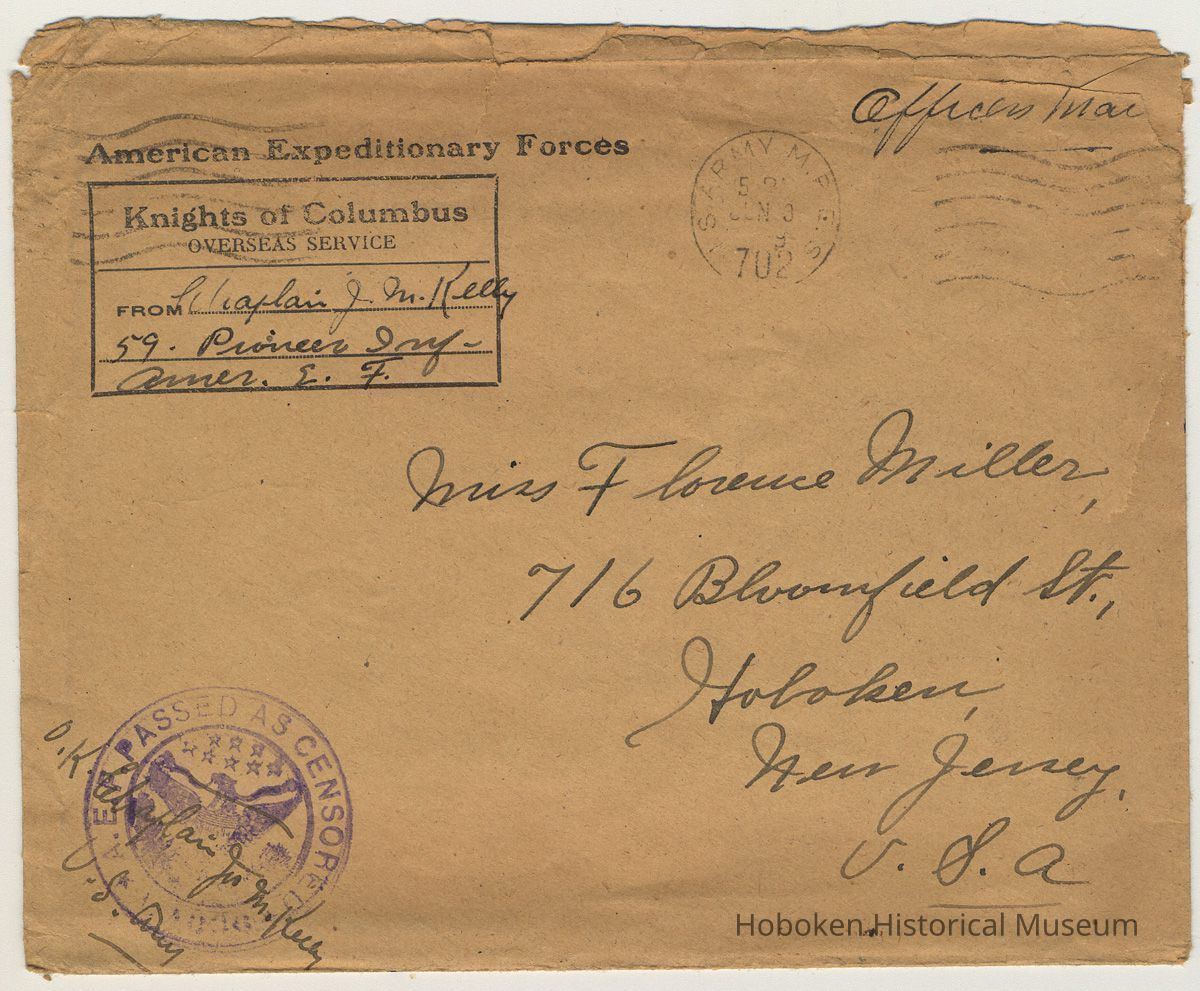 Officers Mai
American Expeditionary Forces
Knights of Columbus
OVERSEAS SERVICE
FROM Chaplain J. M. Kelly
59. Pioneer Inf-
Amer. E. F.
U.S. ARMY M.P.E.S.
JUN 3
702
Miss Florence Miller,
716 Bloomfield St.,
Hoboken,
New Jersey,
U. S. A
A.E.F. PASSED AS CENSORED
O.K.
Chaplain Jos M. Kelly
U.S. Army
Hoboken Historical Museum